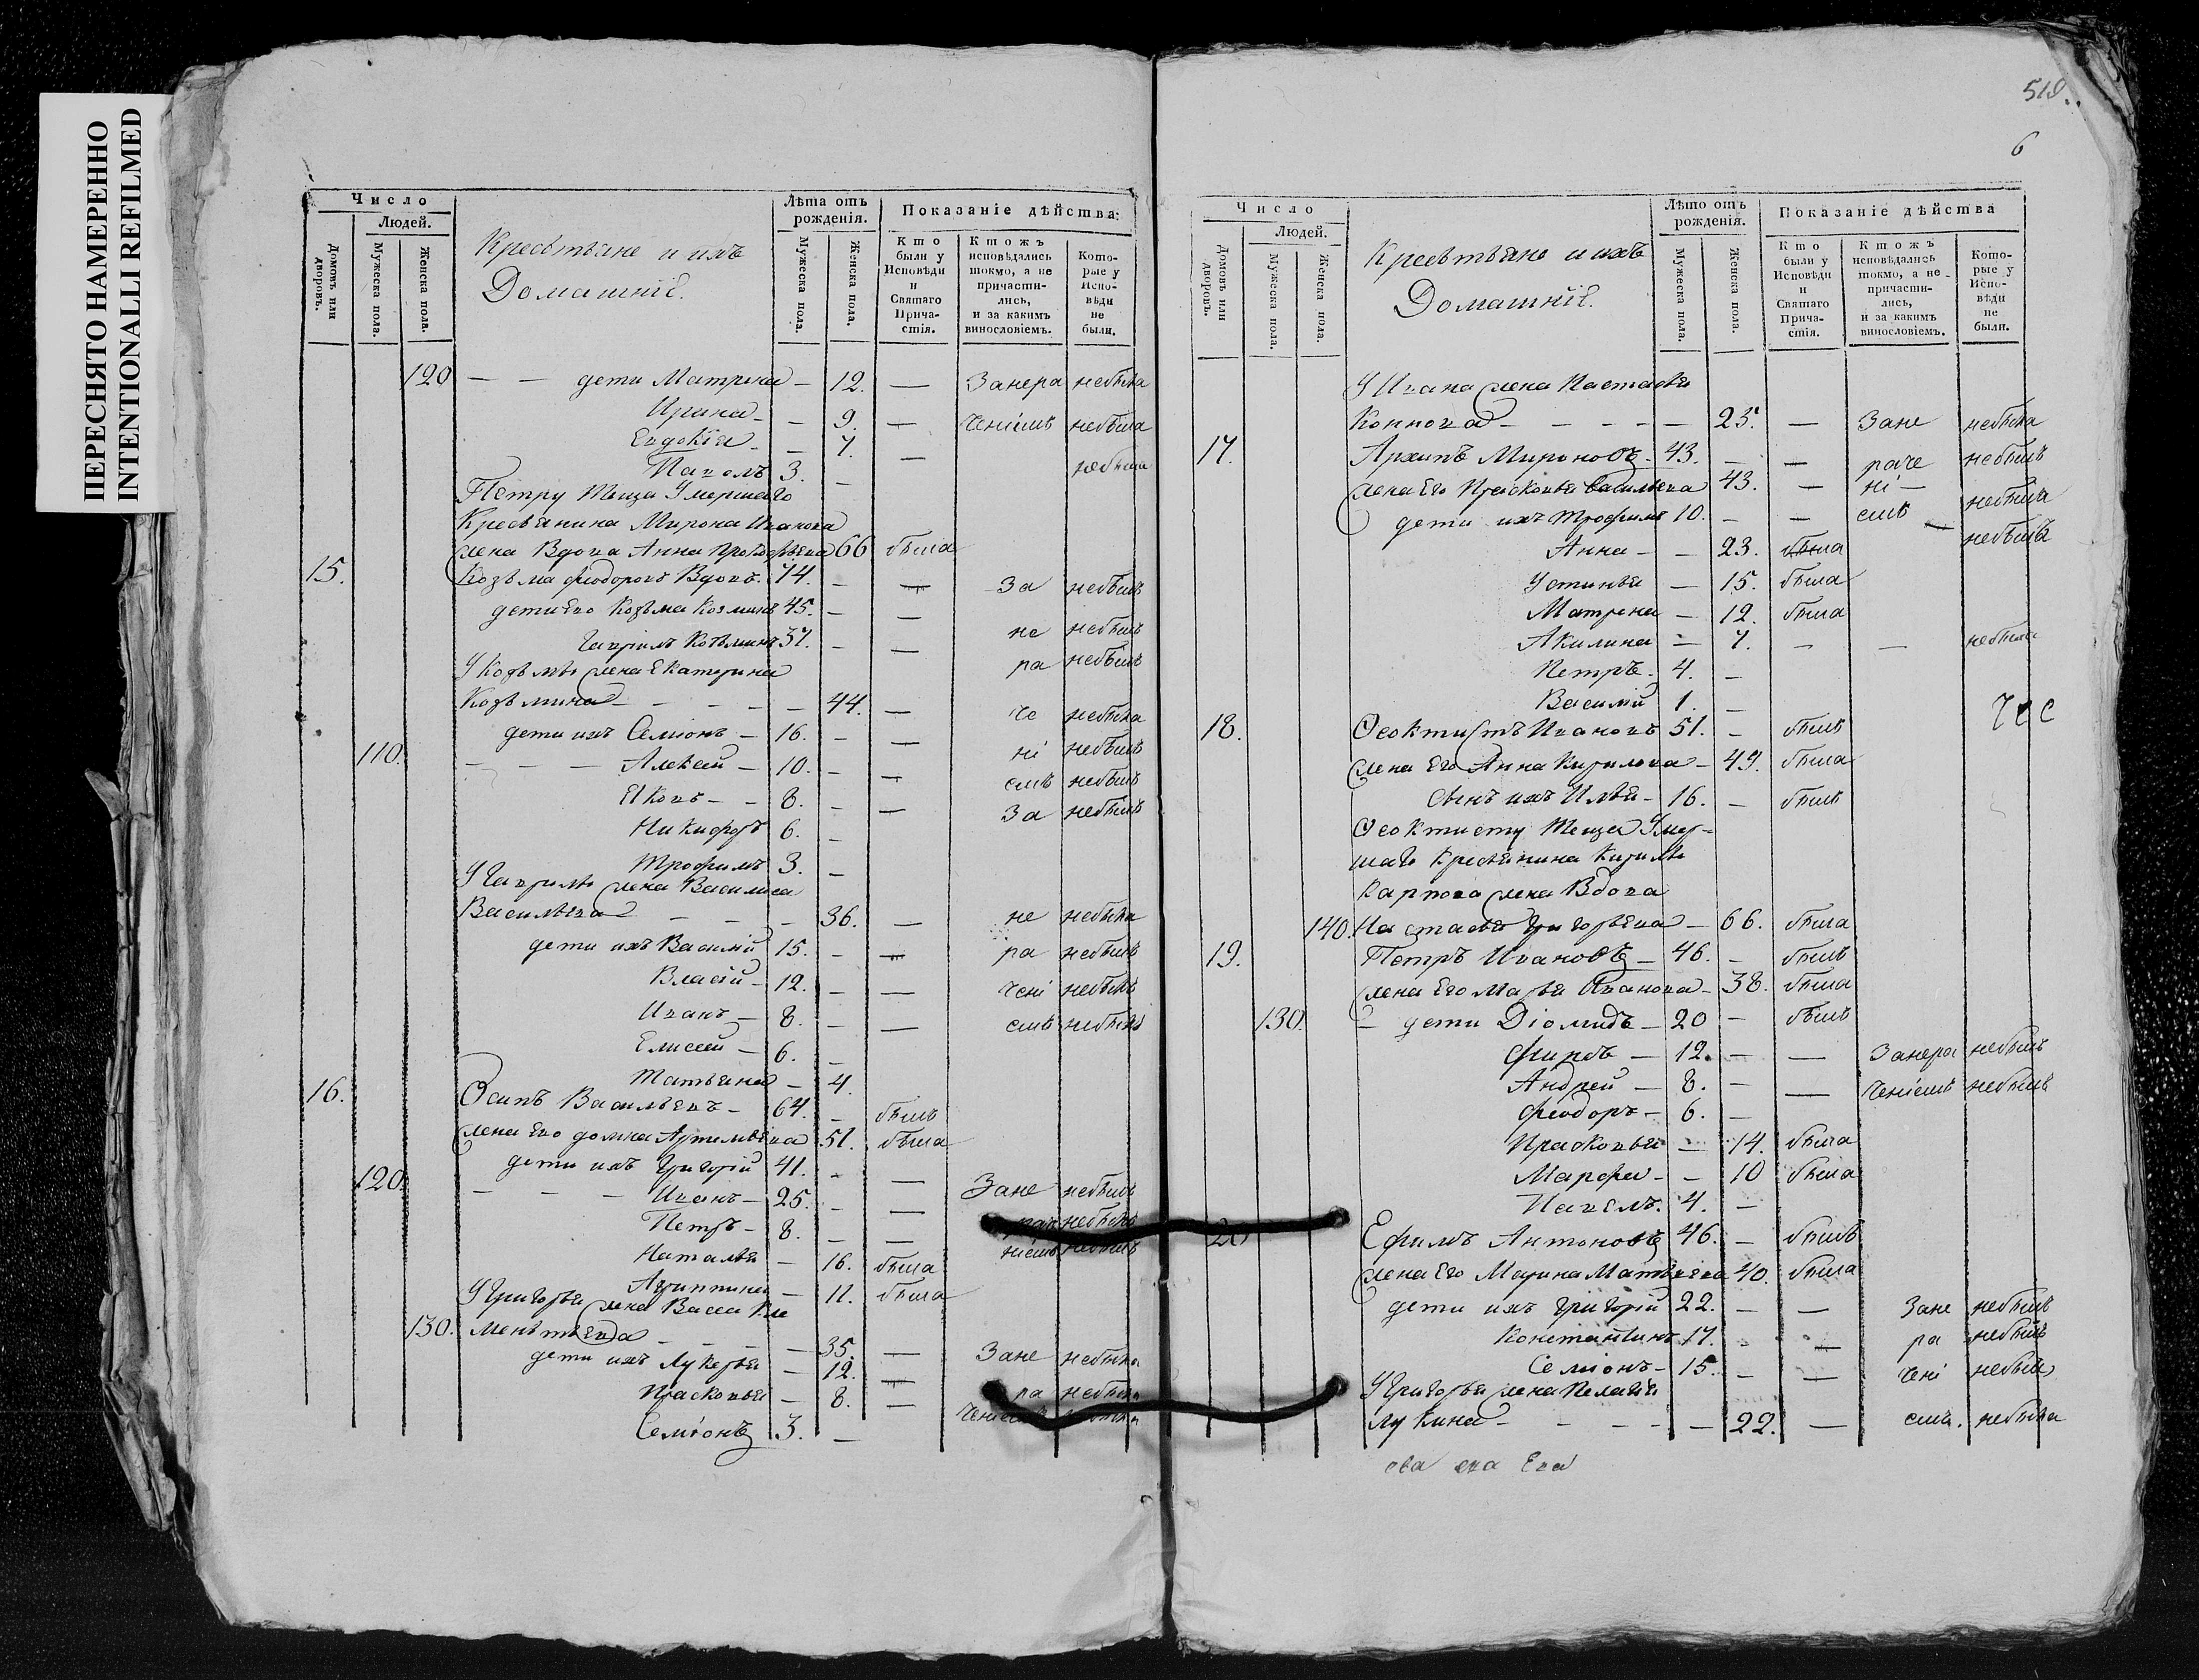 ПЕРЕСНЯТО НАМЕРЕННО
INTENTIONALLI REFILMED
Число
Людей.
Домовъ или дворовъ.
Мужеска пола.
Женска пола.
Крестьяне и ихъ
Домашніе.
Лѣта отъ рожденія.
Мужеска пола.
Женска пола.
Показаніе дѣйства:
Кто были у Исповѣди и Святаго Причастія.
Ктожъ исповѣдались токмо, а не причастились, и за какимъ винословіемъ.
Которые у Исповѣди не были.
120 — — дети Матрена — 12. — Занера небыла
Ирина — — 9. — ченіемъ небыла
Евдокія — — 7. — небыла
Павелъ 3. —
Петру Теща Умершаго
Кресьянина Мирона Иванова
жена Вдова Анна Прокофьева 66 была
15. Козьма Феодоровъ Вдовъ. 74. — — За небылъ
дети Его Козьма Козминъ 45. — — не небылъ
Гаврилъ Козьминъ 37. — — ра небылъ
У Козьмы жена Екатерина
Козьмина — — — — — 44. — че небыла
дети ихъ Семіонъ — 16. — — ні небылъ
110. — — — Алексей — 10. — — емъ небылъ
Яковъ — — 8. — — За небылъ
Никифоръ 6. —
Трофимъ 3. —
У Гаврилы жена Василиса
Васильева — — — 36. — не небыла
дети ихъ Василій 15. — — ра небылъ
Власій — 12. — — чені небылъ
Иванъ — 8. — — емъ небылъ
Елисей — 6. —
Татьяна — 4.
16. Осипъ Васильевъ — 64. — былъ
жена Его Домна Артемьева 51. была
дети ихъ Григорій 41. — — Зане небылъ
120. — — — Иванъ — 25. — — рач небылъ
Петръ — 8. — — ніемъ небылъ
Наталья — 16. была
Агриппина — 11. была
У Григорья жена Васса Кле
130. ментьева — — — — 35. — Зане небыла
дети ихъ Лукерья — 12. — ра небыла
Прасковья — 8. — ченіемъ небыла
Семіонъ 3. —
519.
6
Число
Людей.
Домовъ или дворовъ.
Мужеска пола.
Женска пола.
Крестьяне и ихъ
Домашніе.
Лѣто отъ рожденія.
Мужеска пола.
Женска пола.
Показаніе дѣйства
Кто были у Исповѣди и Святаго Причастія.
Ктожъ исповѣдались токмо, а не причастились, и за какимъ винословіемъ.
Которые у Исповѣди не были.
У Ивана жена Настасья
Коннова — — — — — 25. — Зане небыла
17. Архипъ Мироновъ. 43. — — раче небылъ
жена Его Прасковья Васильева 43. — ні — небыла
дети ихъ Трофимъ 10. — — емъ — небылъ
Анна — — 23. была
Устинья — 15. была
Матрена — 12. была
Акилина — 7. — — небыла
Петръ. 4. —
Василій 1. —
18. Феоктистъ Ивановъ 51. — былъ
жена Его Анна Кирилова — 49. была
сынъ ихъ Илья — 16. — былъ
Феоктисту Теща Умер-
шаго Кресьянина Кирилы
Карпова жена Вдова
140. Настасья Григорьева — 66. была
19. Петръ Ивановъ — 46. — былъ
жена Его Марья Иванова — 38. была
130. — дети Діомидъ — 20 — былъ
Фирсъ — 12. — — Занера небылъ
Андрей — 8. — — ченіемъ небылъ
Феодоръ — 6. —
Прасковья — 14. была
Марфа — — 10 была
Павелъ. 4. —
20 Ефимъ Антоновъ 46. — былъ
жена Его Марина Матвеева 40. была
дети ихъ Григорій 22. — — Зане небылъ
Константинъ 17. — — ра небылъ
Семіонъ — 15. — — чені небылъ
У Григорья жена Пелагія
Лукина — — — — — 22. — емъ. небыла
ева ева Ева